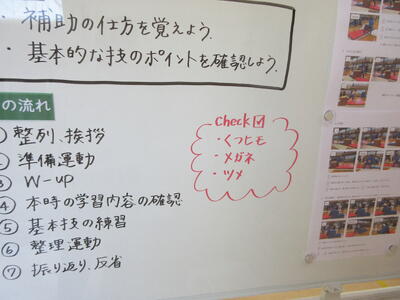 ・補助の仕方を覚えよう.
・基本的な技のポイントを確認しよう.
の流れ
①整列、挨拶
②準備運動
③W-up
④本時の学習内容の確認
⑤基本技の練習
⑥整理運動
⑦振り返り、反省
Check☑
・くつヒモ
・メガネ
・ツメ